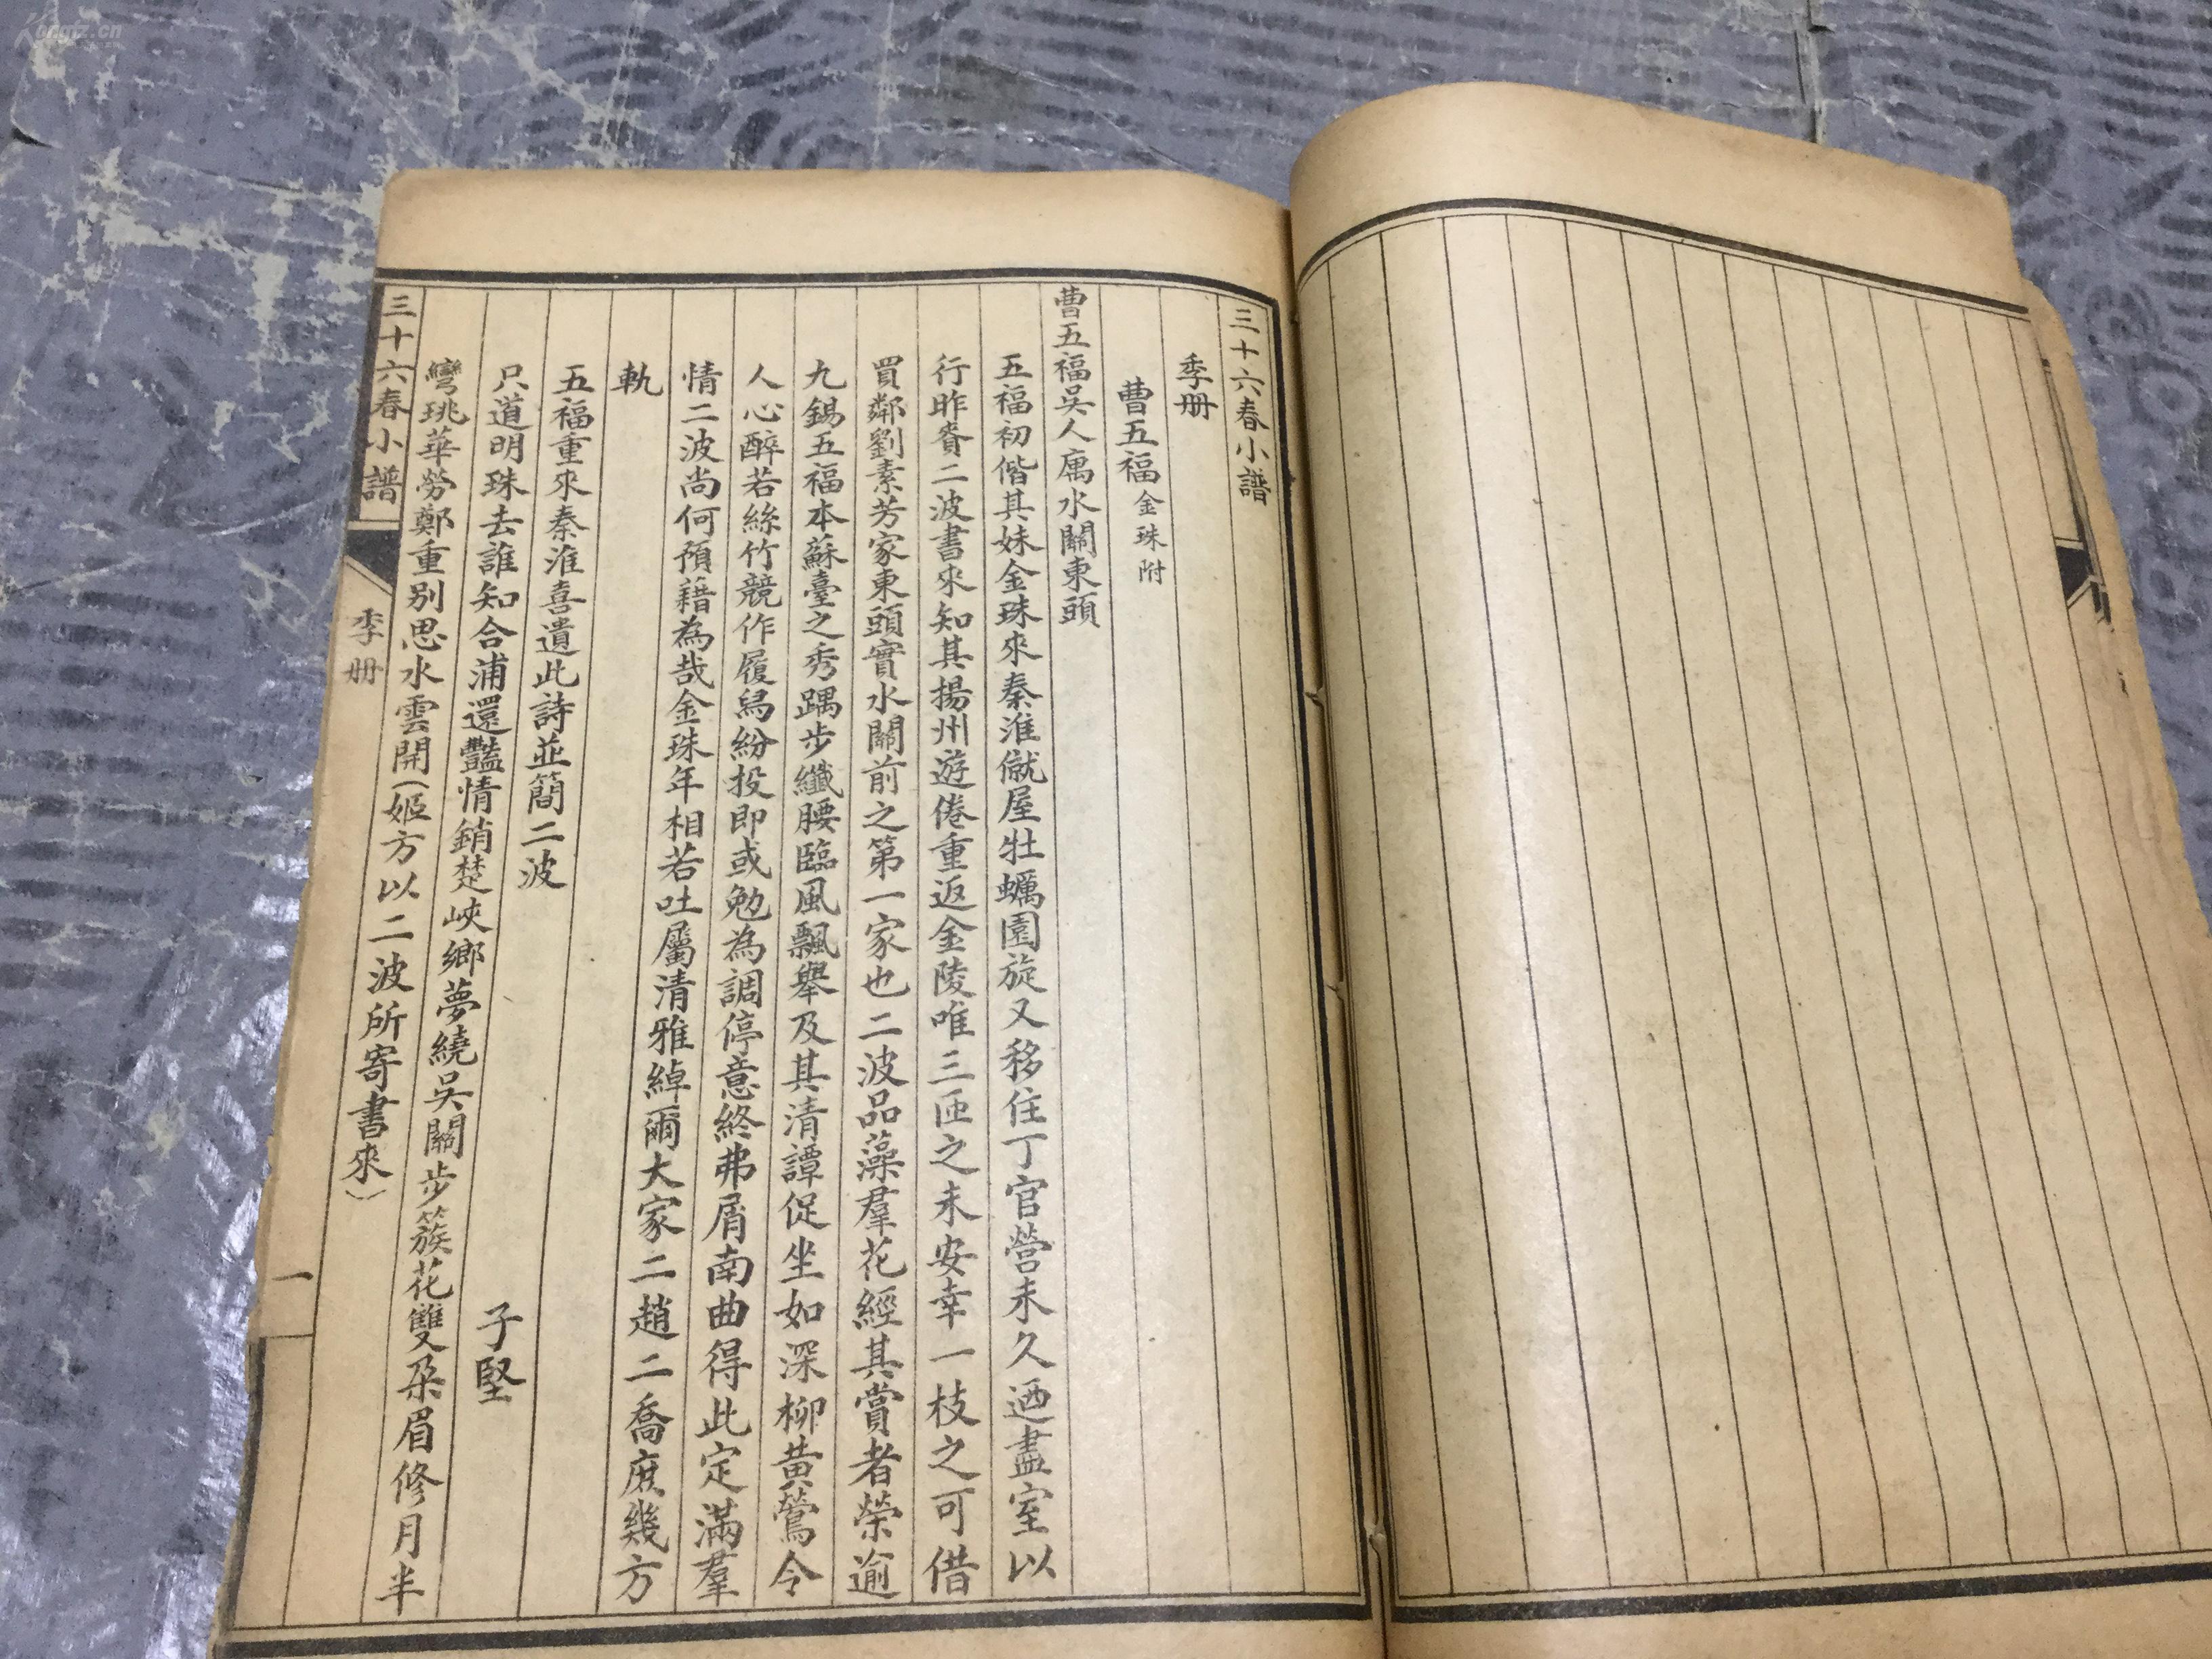 三十六春小譜
季册
曹五福金珠附
曹五福吳人厲水關東頭
五福初偕其妹金珠來秦淮僦屋牡蠣園旋又移住丁官營未久迺盡室以
行昨賚二波書來知其揚州遊倦重返金陵唯三匝之未安幸一枝之可借
買鄰劉素芳家東頭實水關前之第一家也二波品藻羣花經其賞者榮逾
九錫五福本蘇臺之秀踽步纖腰臨風飄舉及其清譚促坐如深柳黄鶯令
人心醉若絲竹競作履舄紛投即或勉為調停意終弗屑南曲得此定滿羣
情二波尚何預藉為哉金珠年相若吐屬清雅綽爾大家二趙二喬庶幾方
軌
五福重來秦淮喜遺此詩並簡二波
子堅
只道明珠去誰知合浦還豔情銷楚峽鄉夢繞吳關步簇花雙朶眉修月半
彎珧華勞鄭重别思水雲開(姬方以二波所寄書來)
三十六春小譜
季册
一